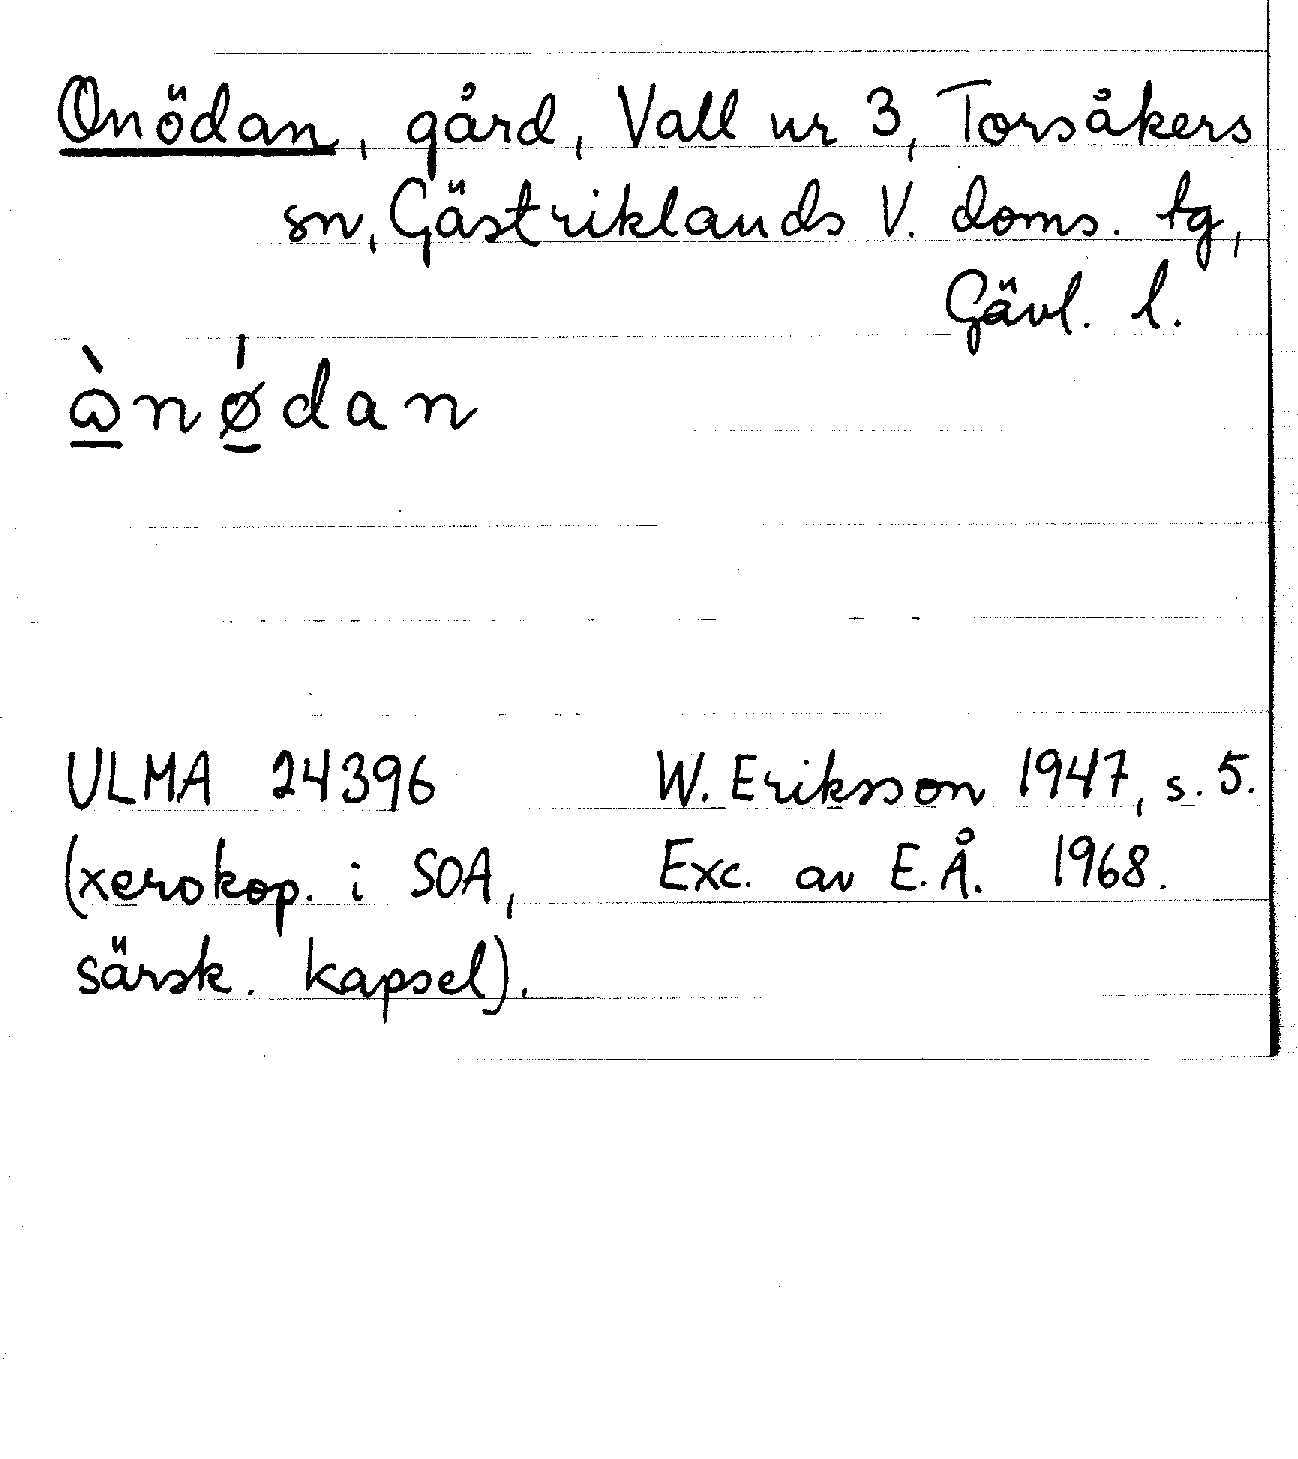 Onödan, gård, Vall nr 3, Torsåkers
sn, Gästriklands V. doms. tg,
Gävl. l.
ὼnǿdan
ULMA 24396 W. Eriksson 1947, s. 5.
(xerokop. i SOA, Exc. av E.Å. 1968.
särsk. kapsel).